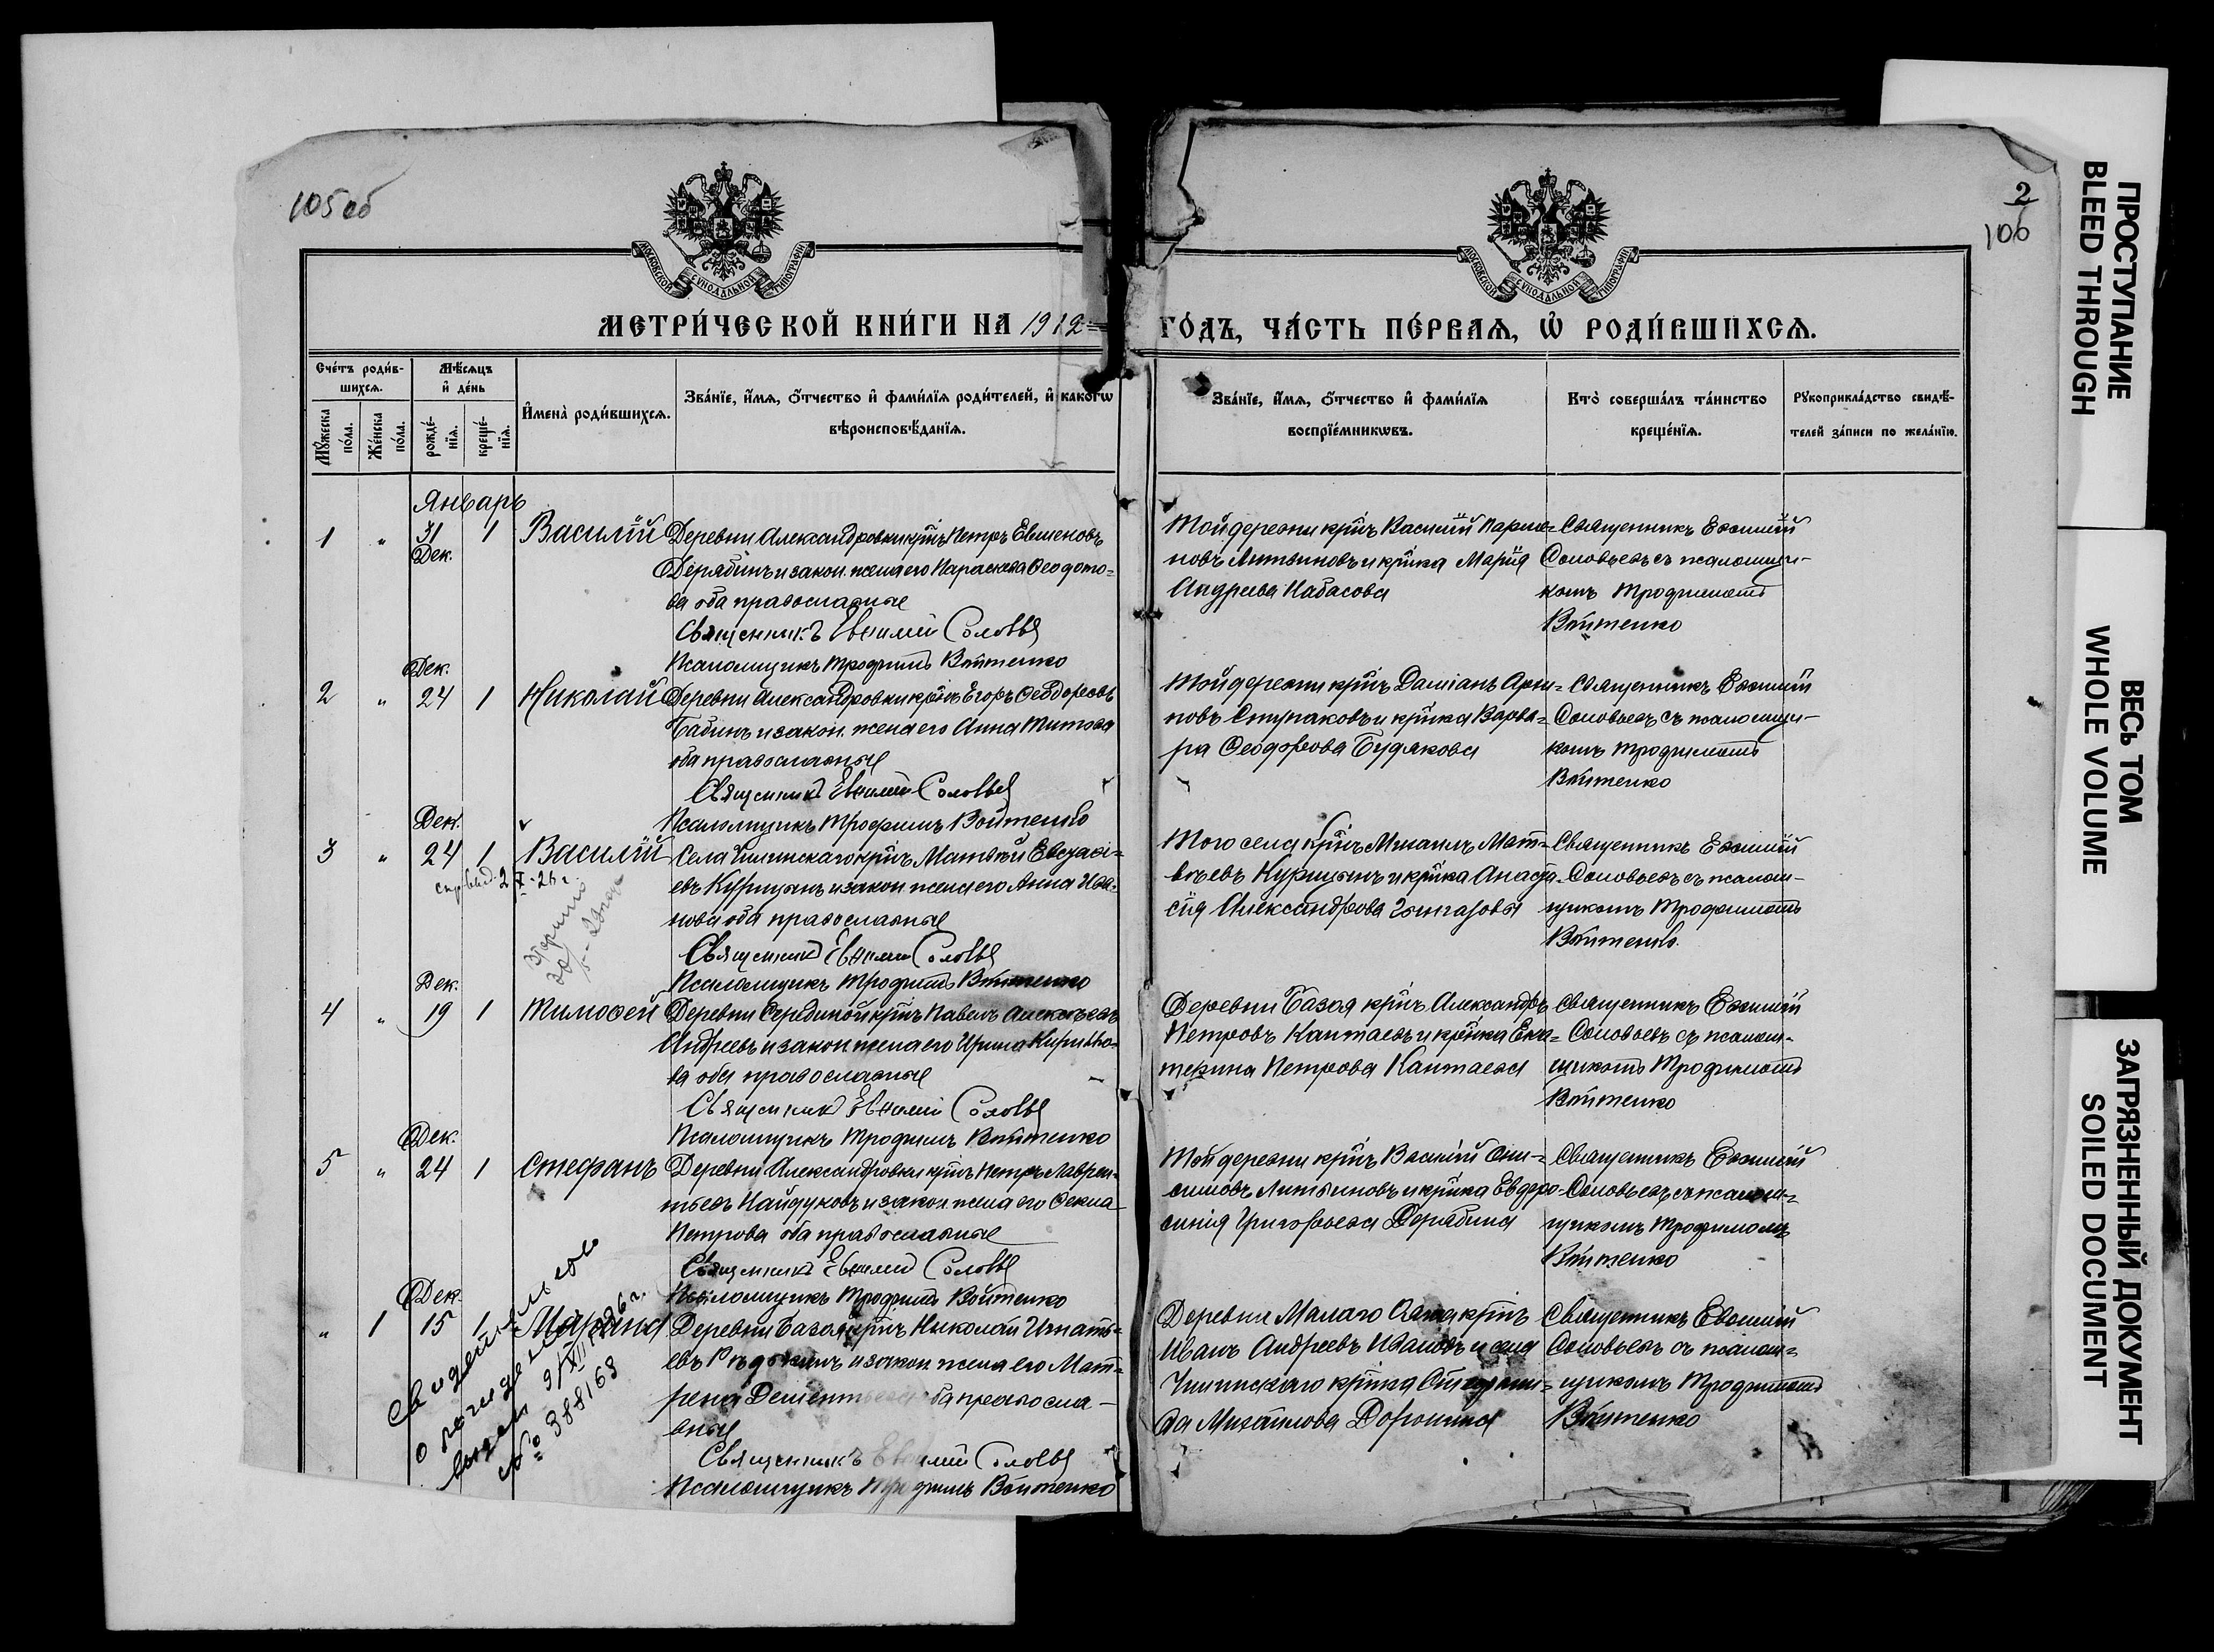 105 об
2
106
МОСКОВСКОЙ СѴНОДАЛЬНОЙ ТИПОГРАФІИ
МОСКОВСКОЙ СѴНОДАЛЬНОЙ ТИПОГРАФІИ
МЕТРИ́ЧЕСКОЙ КНИ́ГИ НА 1912
ГО́ДЪ, ЧА́СТЬ ПЕ́РВАѦ, Ѡ҆ РОДИ́ВШИХСѦ.
Сче́тъ роди́в-
шихсѧ.
Мꙋ́жеска
по́ла.
Же́нска
по́ла.
Мѣ́сѧцъ
и҆ де́нь
рожде́-
нїѧ.
креще́-
нїѧ.
И҆мена̀ роди́вшихсѧ.
Зва́нїе, и҆́мѧ, ѻ҆́тчество и҆ фами́лїѧ роди́телей, и҆ како́гѡ
вѣроисповѣ́данїѧ.
Зва́нїе, и҆́мѧ, ѻ҆́тчество и҆ фами́лїѧ
воспрїе́мникѡвъ.
Кто̀ соверша́лъ та́инство
креще́нїѧ.
Рꙋкоприкла́дство свидѣ́-
телей за́писи по жела́нїю.
Январь
1 " 31 1 Василій
Дек.
Деревни Александровки кр҃нъ Петръ Евменовъ
Дерябинъ и закон. жена его Параскева Ѳеодото-
ва оба православные
Священникъ Евѳимій Соловьев
Псаломщикъ Трофимъ Войтенко
Той деревни кр҃нъ Василій
новъ Литвиновъ и кр҃нка Марія
Андреева Набасова
Священникъ Евѳимій
Соловьевъ съ псаломщи-
комъ Трофимомъ
Войтенко
Дек.
2 " 24 1 Николай
Деревни Александровки кр҃нъ Егоръ Ѳеодоровъ
Бабинъ и закон. жена его Анна Титова
оба православные
Священникъ Евѳимій Соловьев
Псаломщикъ Трофимъ Войтенко
Той деревни кр҃нъ Даміанъ
новъ Ступаковъ и кр҃нка Варва-
ра Ѳеодорова Будякова
Священникъ Евѳимій
Соловьевъ съ псаломщи-
комъ Трофимомъ
Войтенко
Дек.
3 " 24 1 Василій
2 X - 26 г.
Села Чистинскаго кр҃нъ Матѳей
евъ Курицынъ и закон жена его Анна Ива-
нова оба православные
Священникъ Евѳимій Соловьев
Псаломщикъ Трофимъ Войтенко
Того села кр҃нъ Михаилъ Мат-
вѣевъ Курицынъ и кр҃нка Анаста-
сія Александрова
Священникъ Евѳимій
Соловьевъ съ псалом-
щикомъ Трофимомъ
Войтенко.
Дек.
4 " 19 1 Тимоѳей
Деревни Серединой кр҃нъ Павелъ Алексѣевъ
Андреевъ и закон жена его Ирина Кирилло-
ва оба православные
Священникъ Евѳимій Соловьев
Псаломщикъ Трофимъ Войтенко
Деревни Базоя кр҃нъ Александръ
Петровъ Каптаевъ и кр҃нка Ека-
терина Петрова Каптаева
Священникъ Евѳимій
Соловьевъ съ псалом-
щикомъ Трофимомъ
Войтенко
Дек.
5 " 24 1 Стефанъ
Деревни Александровки кр҃нъ Петръ Лаврен-
тьевъ Найдуковъ и закон. жена его Ѳекла
Петрова оба православные
Священникъ Евѳимій Соловьев
Псаломщикъ Трофимъ Войтенко
Той деревни кр҃нъ Василій Они-
симовъ Литвиновъ и кр҃нка Евфро-
синія Григорьева Дерябина
Священникъ Евѳимій
Соловьевъ съ псалом-
щикомъ Трофимомъ
Войтенко
Дек.
" 1 15 1 Марина
Деревни Базоя кр҃нъ Николай Игнать-
евъ и закон жена его Мат-
рена Дементьева оба правосла-
вные
Священникъ Евѳимій Соловьев
Псаломщикъ Трофимъ Войтенко
Деревни Малаго кр҃нъ
Иванъ Андреевъ Ивановъ и села
Чистинскаго кр҃нка Степани-
да Михаилова Доронина
Священникъ Евѳимій
Соловьевъ съ псалом-
щикомъ Трофимомъ
Войтенко
Свидетельство
о рождении
выдано 9/XII 1936 г.
№ 388168
ПРОСТУПАНИЕ
BLEED THROUGH
ВЕСЬ ТОМ
WHOLE VOLUME
ЗАГРЯЗНЕННЫЙ ДОКУМЕНТ
SOILED DOCUMENT